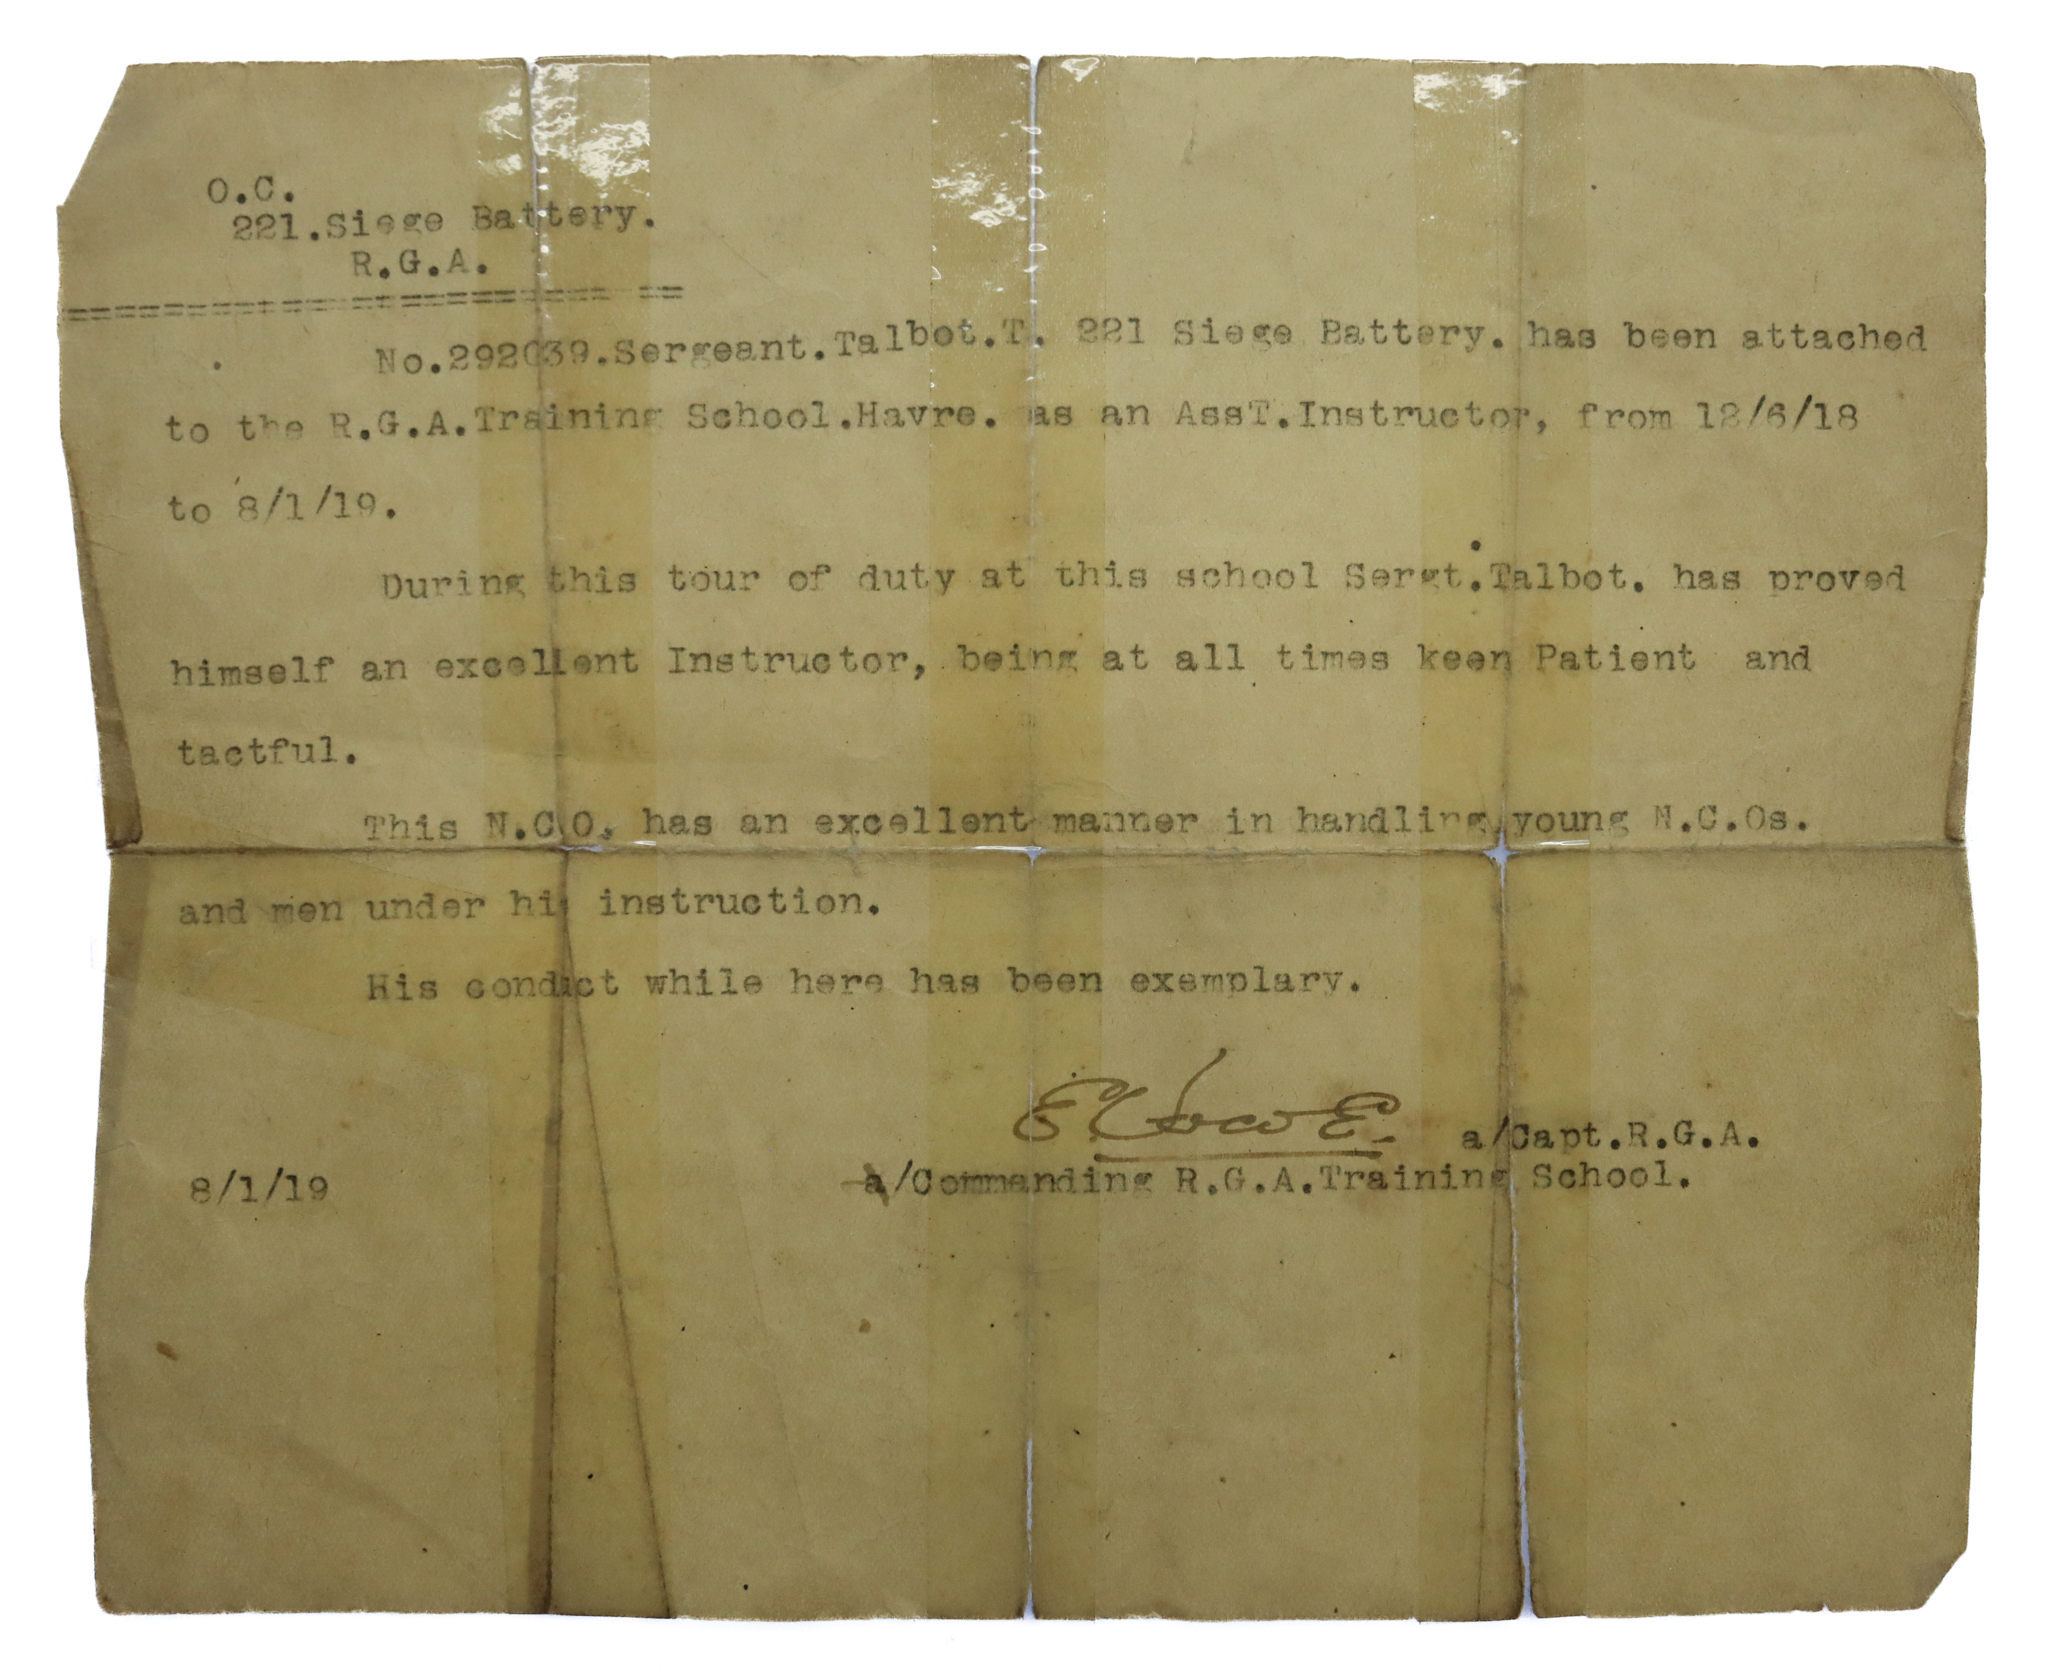 O.C.
221.Siege Battery.
R.G.A.
No.292039.Sergeant.Talbot.T. 221 Siege Battery. has been attached
to the R.G.A.Training School.Havre. as an AssT.Instructor, from 12/6/18
to 8/1/19.
During this tour of duty at this school Sergt.Talbot. has proved
himself an excellent Instructor, being at all times keen Patient and
tactful.
This N.C.O. has an excellent manner in handling young N.C.Os.
and men under his instruction.
His conduct while here has been exemplary.
a/Capt.R.G.A.
8/1/19 a/Commanding R.G.A.Training School.